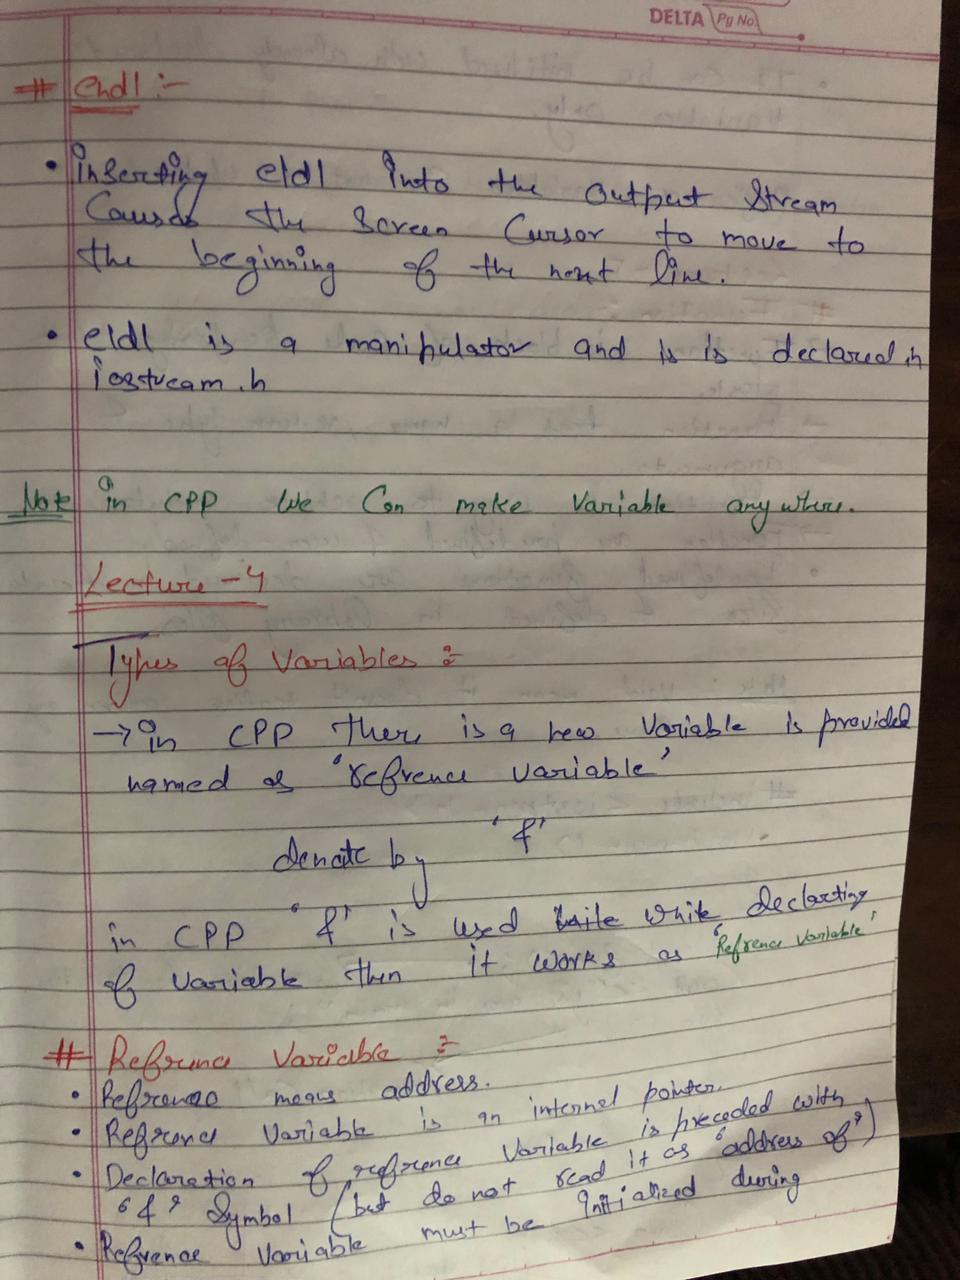 DELTA Pg No
# endl :-
• inserting eldl into the output stream
Causes the screen Cursor to move to
the beginning of the next line.
• eldl is a manipulator and is is declared in
iostream.h
Note in CPP We Can make Variable anywhere.
Lecture - 4
Types of Variables :-
→ in CPP there is a new Variable is provided
named as 'refrence variable'
denote by '&'
in CPP '&' is used while declarting
of variable then it works as 'Refrence Variable'
# Refrence Variable :-
• Refrence means address.
• Refrence Variable is an internal pointer.
• Declaration of refrence Variable is preceded with
"&" Symbol (but do not read it as "address of")
• Refrence Variable must be Initialized during